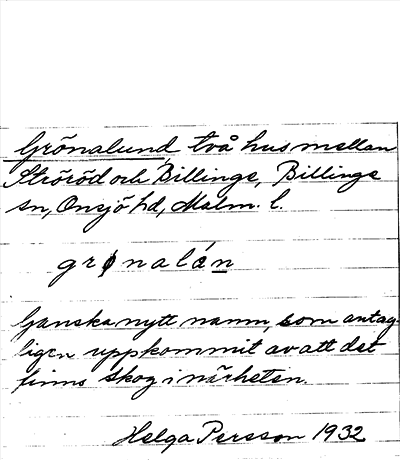 Grönalund två hus mellan
Ströröd och Billinge, Billinge
sn, Onsjö hd, Malm. l.
grønalán
Ganska nytt namn, som antag-
ligen uppkommit av att det
finns skog i närheten.
Helga Persson 1932